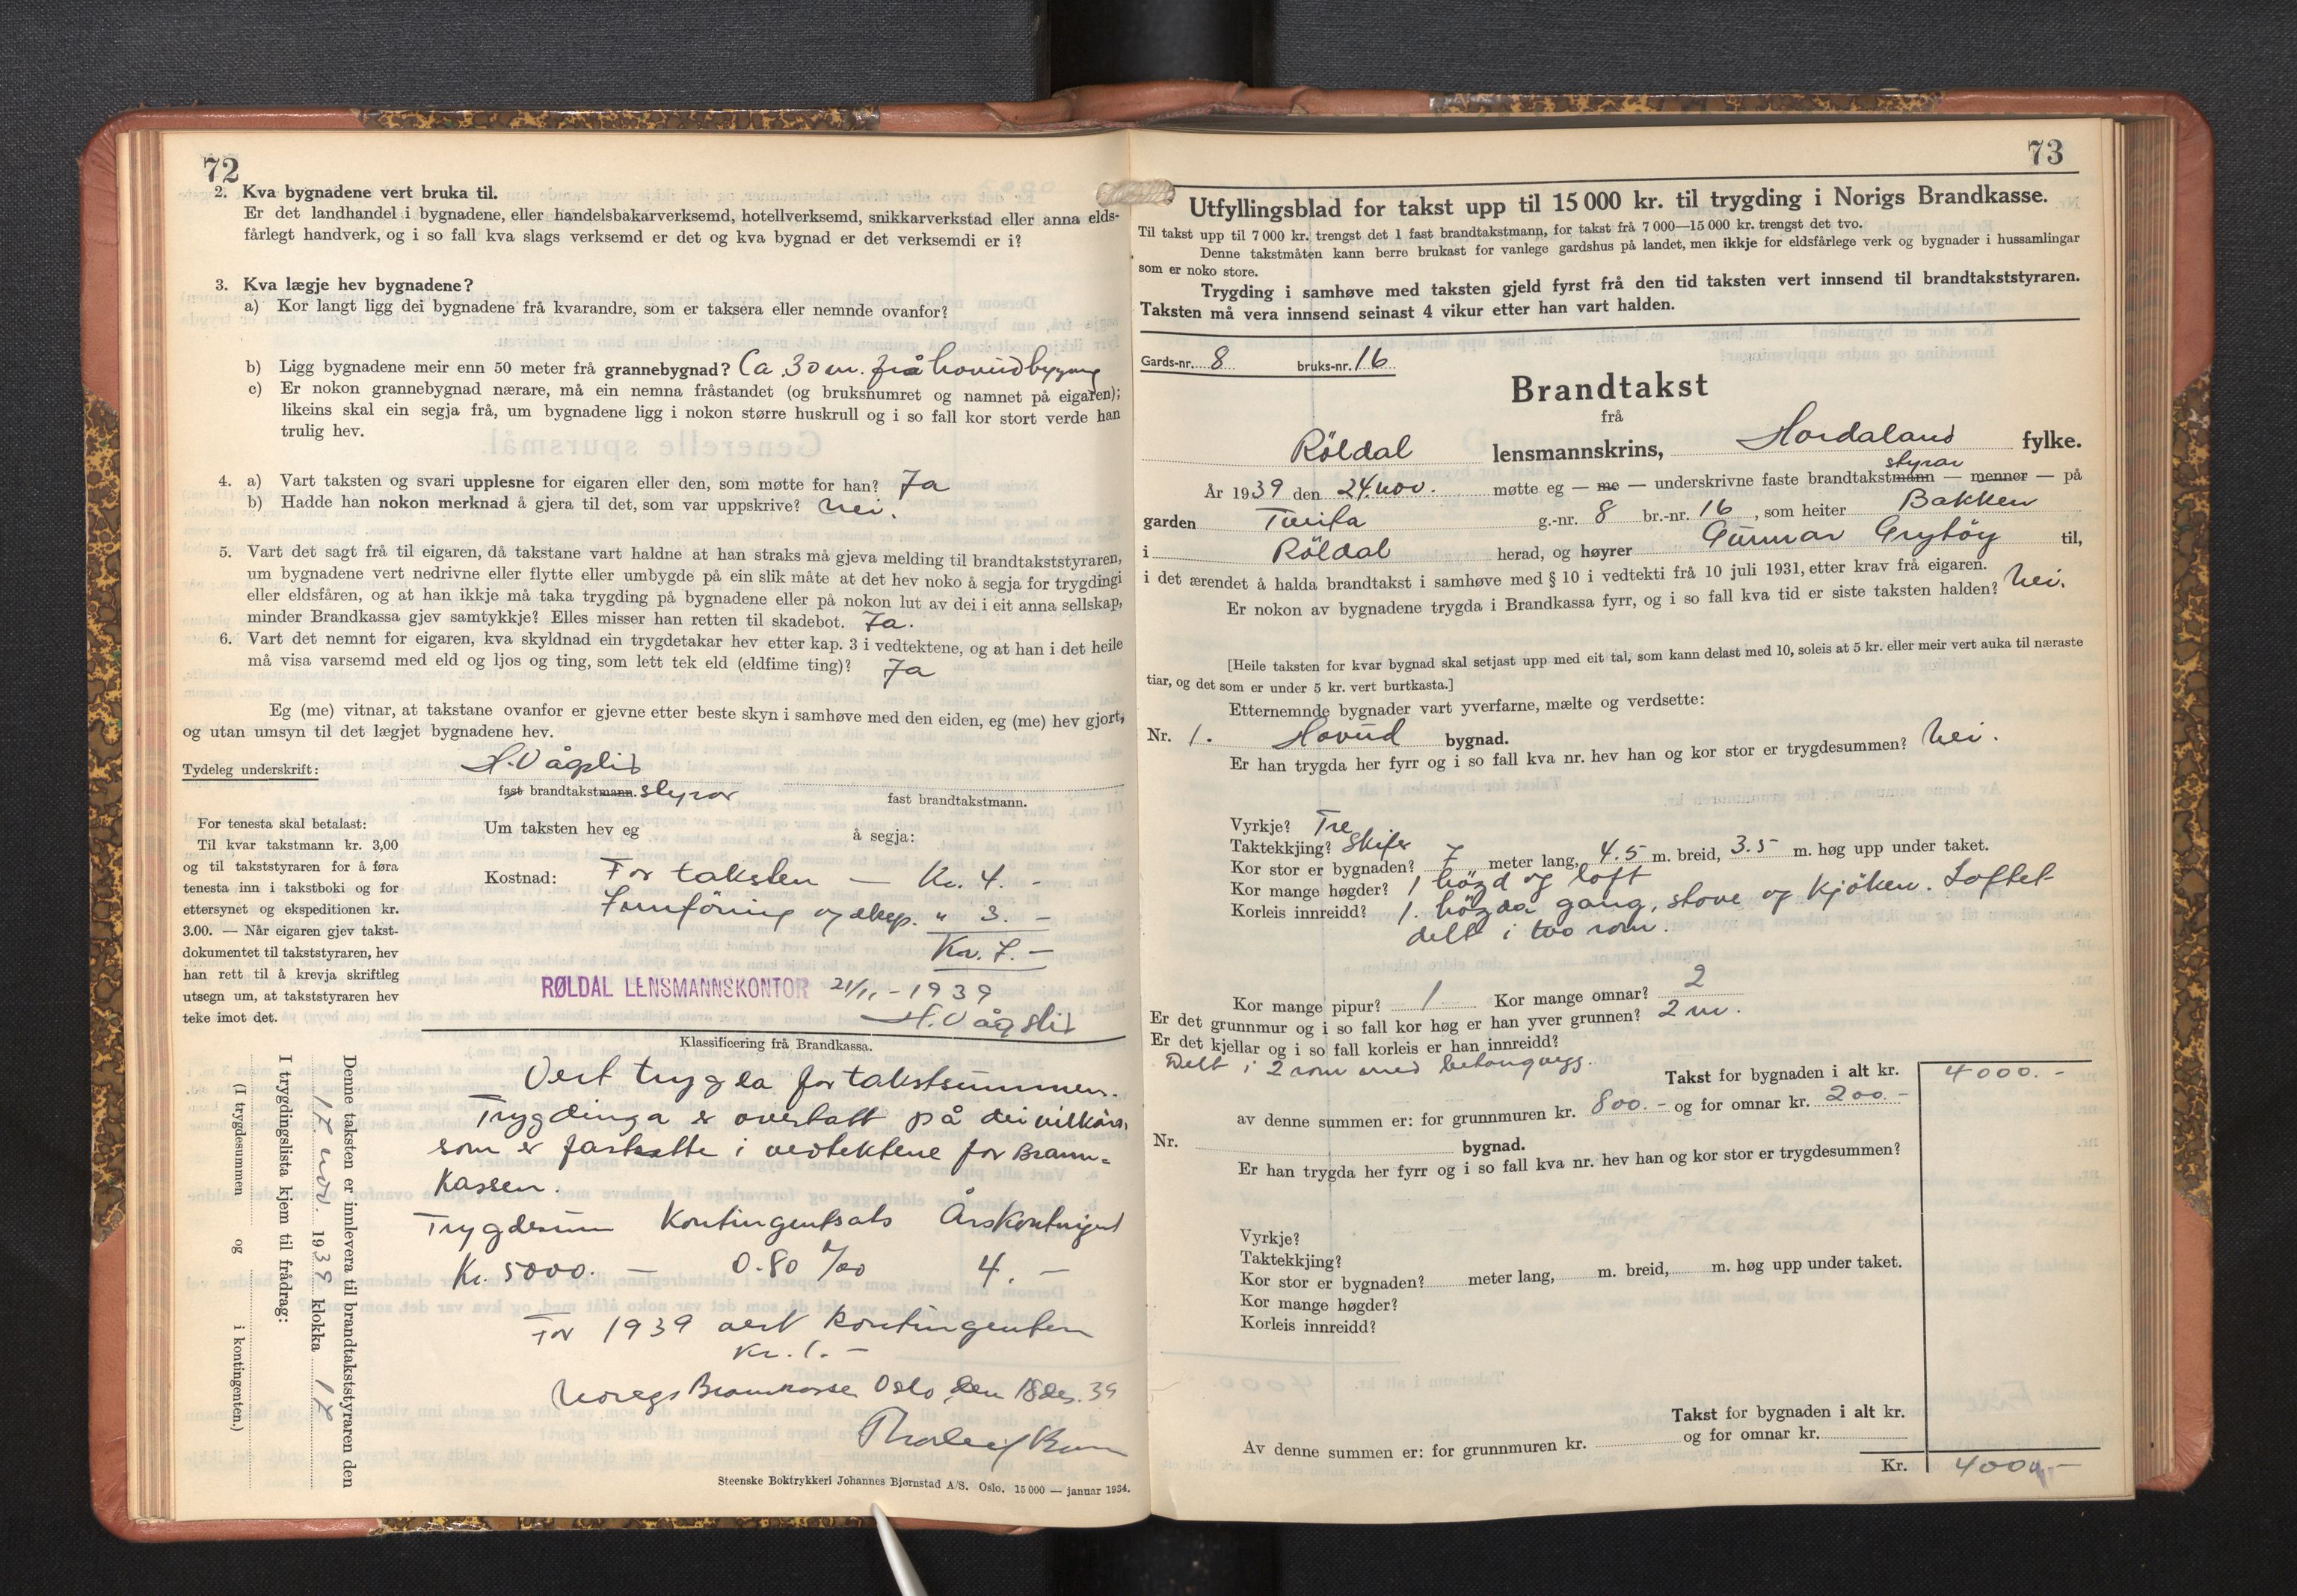 72
2. Kva bygnadene vert bruka til.
Er det landhandel i bygnadene, eller handelsbakarverksemd, hotellverksemd, snikkarverkstad eller anna elds-
fårlegt handverk, og i so fall kva slags verksemd er det og kva bygnad er det verksemdi er i?
3. Kva lægje hev bygnadene?
a) Kor langt ligg dei bygnadene frå kvarandre, som er taksera eller nemnde ovanfor?
b) Ligg bygnadene meir enn 50 meter frå grannebygnad? Ca 30 m. frå hovudbygning
c) Er nokon grannebygnad nærare, må ein nemna fråstandet (og bruksnumret og namnet på eigaren);
likeins skal ein segja frå, um bygnadene ligg i nokon større huskrull og i so fall kor stort verde han
trulig hev.
4. a) Vart taksten og svari upplesne for eigaren eller den, som møtte for han? Ja
b) Hadde han nokon merknad å gjera til det, som var uppskrive? Nei.
5. Vart det sagt frå til eigaren, då takstane vart haldne at han straks må gjeva melding til brandtakststyraren,
um bygnadene vert nedrivne eller flytte eller umbygde på ein slik måte at det hev noko å segja for trygdingi
eller eldsfåren, og at han ikkje må taka trygding på bygnadene eller på nokon lut av dei i eit anna sellskap,
minder Brandkassa gjev samtykkje? Elles misser han retten til skadebot. Ja.
6. Vart det nemnt for eigaren, kva skyldnad ein trygdetakar hev etter kap. 3 i vedtektene, og at han i det heile
må visa varsemd med eld og ljos og ting, som lett tek eld (eldfime ting)? Ja
Eg (me) vitnar, at takstane ovanfor er gjevne etter beste skyn i samhøve med den eiden, eg (me) hev gjort,
og utan umsyn til det lægjet bygnadene hev.
Tydeleg underskrift: H. Vågslid
fast brandtakstmann. styrar fast brandtakstmann.
For tenesta skal betalast:
Til kvar takstmann kr. 3,00
og til takststyraren for å føra
tenesta inn i takstboki og for
ettersynet og ekspeditionen kr.
3.00. — Når eigaren gjev takst-
dokumentet til takststyraren, hev
han rett til å krevja skriftleg
utsegn um, at takststyraren hev
teke imot det.
Um taksten hev eg å segja:
Kostnad: For taksten — Kr. 4. -
Innföring og eksp. " 3. -
Kr. 7. -
RØLDAL LENSMANNSKONTOR 21/11 - 1939
H. Vågslid
Klassificering frå Brandkassa.
Vert trygda for takstsummen.
Trygdinga er overtatt på dei vilkåra,
som er fastsette i vedtektene for Brann-
kassen.
Trygdesum Kontingentsats Årskontingent
Kr. 5000. — 0.80 ‰ 4. —
For 1939 vert kontingenten
kr. 1. —
Noregs Brannkasse Oslo, den 18 des. 39
Denne taksten er innlevera til brandtakststyraren den
17 nov. 1939 klokka 17
I trygdingslista kjem til frådrag:
(I trygdesummen og i kontingenten.)
Steenske Boktrykkeri Johannes Bjørnstad A/S. Oslo. 15 000 — januar 1934.
73
Utfyllingsblad for takst upp til 15 000 kr. til trygding i Norigs Brandkasse.
Til takst upp til 7 000 kr. trengst det 1 fast brandtakstmann, for takst frå 7 000—15 000 kr. trengst det tvo.
Denne takstmåten kann berre brukast for vanlege gardshus på landet, men ikkje for eldsfårlege verk og bygnader i hussamlingar
som er noko store.
Trygding i samhøve med taksten gjeld fyrst frå den tid taksten vert innsend til brandtakststyraren.
Taksten må vera innsend seinast 4 vikur etter han vart halden.
Gards-nr. 8 bruks-nr. 16
Brandtakst
frå
Röldal lensmannskrins, Hordaland fylke.
styrar
År 1939 den 24. nov. møtte eg — me — underskrivne faste brandtakstmann — menner — på
garden g.-nr. 8 br.-nr. 16, som heiter Bakken
i Röldal herad, og høyrer Gunnar Grytöy til,
i det ærendet å halda brandtakst i samhøve med § 10 i vedtekti frå 10 juli 1931, etter krav frå eigaren.
Er nokon av bygnadene trygda i Brandkassa fyrr, og i so fall kva tid er siste taksten halden? Nei.
[Heile taksten for kvar bygnad skal setjast upp med eit tal, som kann delast med 10, soleis at 5 kr. eller meir vert auka til næraste
tiar, og det som er under 5 kr. vert burtkasta.]
Etternemnde bygnader vart yverfarne, mælte og verdsette:
Nr. 1. Hovud bygnad.
Er han trygda her fyrr og i so fall kva nr. hev han og kor stor er trygdesummen? Nei.
Vyrkje? Tre
Taktekkjing? Skifer
Kor stor er bygnaden? 7 meter lang, 4.5 m. breid, 3.5 m. høg upp under taket.
Kor mange høgder? 1 högd og loft
Korleis innreidd? 1. högda gang, stove og kjöken. Loftet
delt i tvo rom.
Kor mange pipur? 1 Kor mange omnar? 2
Er det grunnmur og i so fall kor høg er han yver grunnen? 2 m.
Er det kjellar og i so fall korleis er han innreidd?
Delt i 2 rom med betongvegg.
Takst for bygnaden i alt kr. 4000. -
av denne summen er: for grunnmuren kr. 800. - og for omnar kr. 200. -
Nr. bygnad.
Er han trygda her fyrr og i so fall kva nr. hev han og kor stor er trygdesummen?
Vyrkje?
Taktekkjing?
Kor stor er bygnaden? meter lang, m. breid, m. høg upp under taket.
Kor mange høgder?
Korleis innreidd?
Takst for bygnaden i alt kr.
Av denne summen er: for grunnmuren kr. og for omnar kr.
Kr. 4000,-